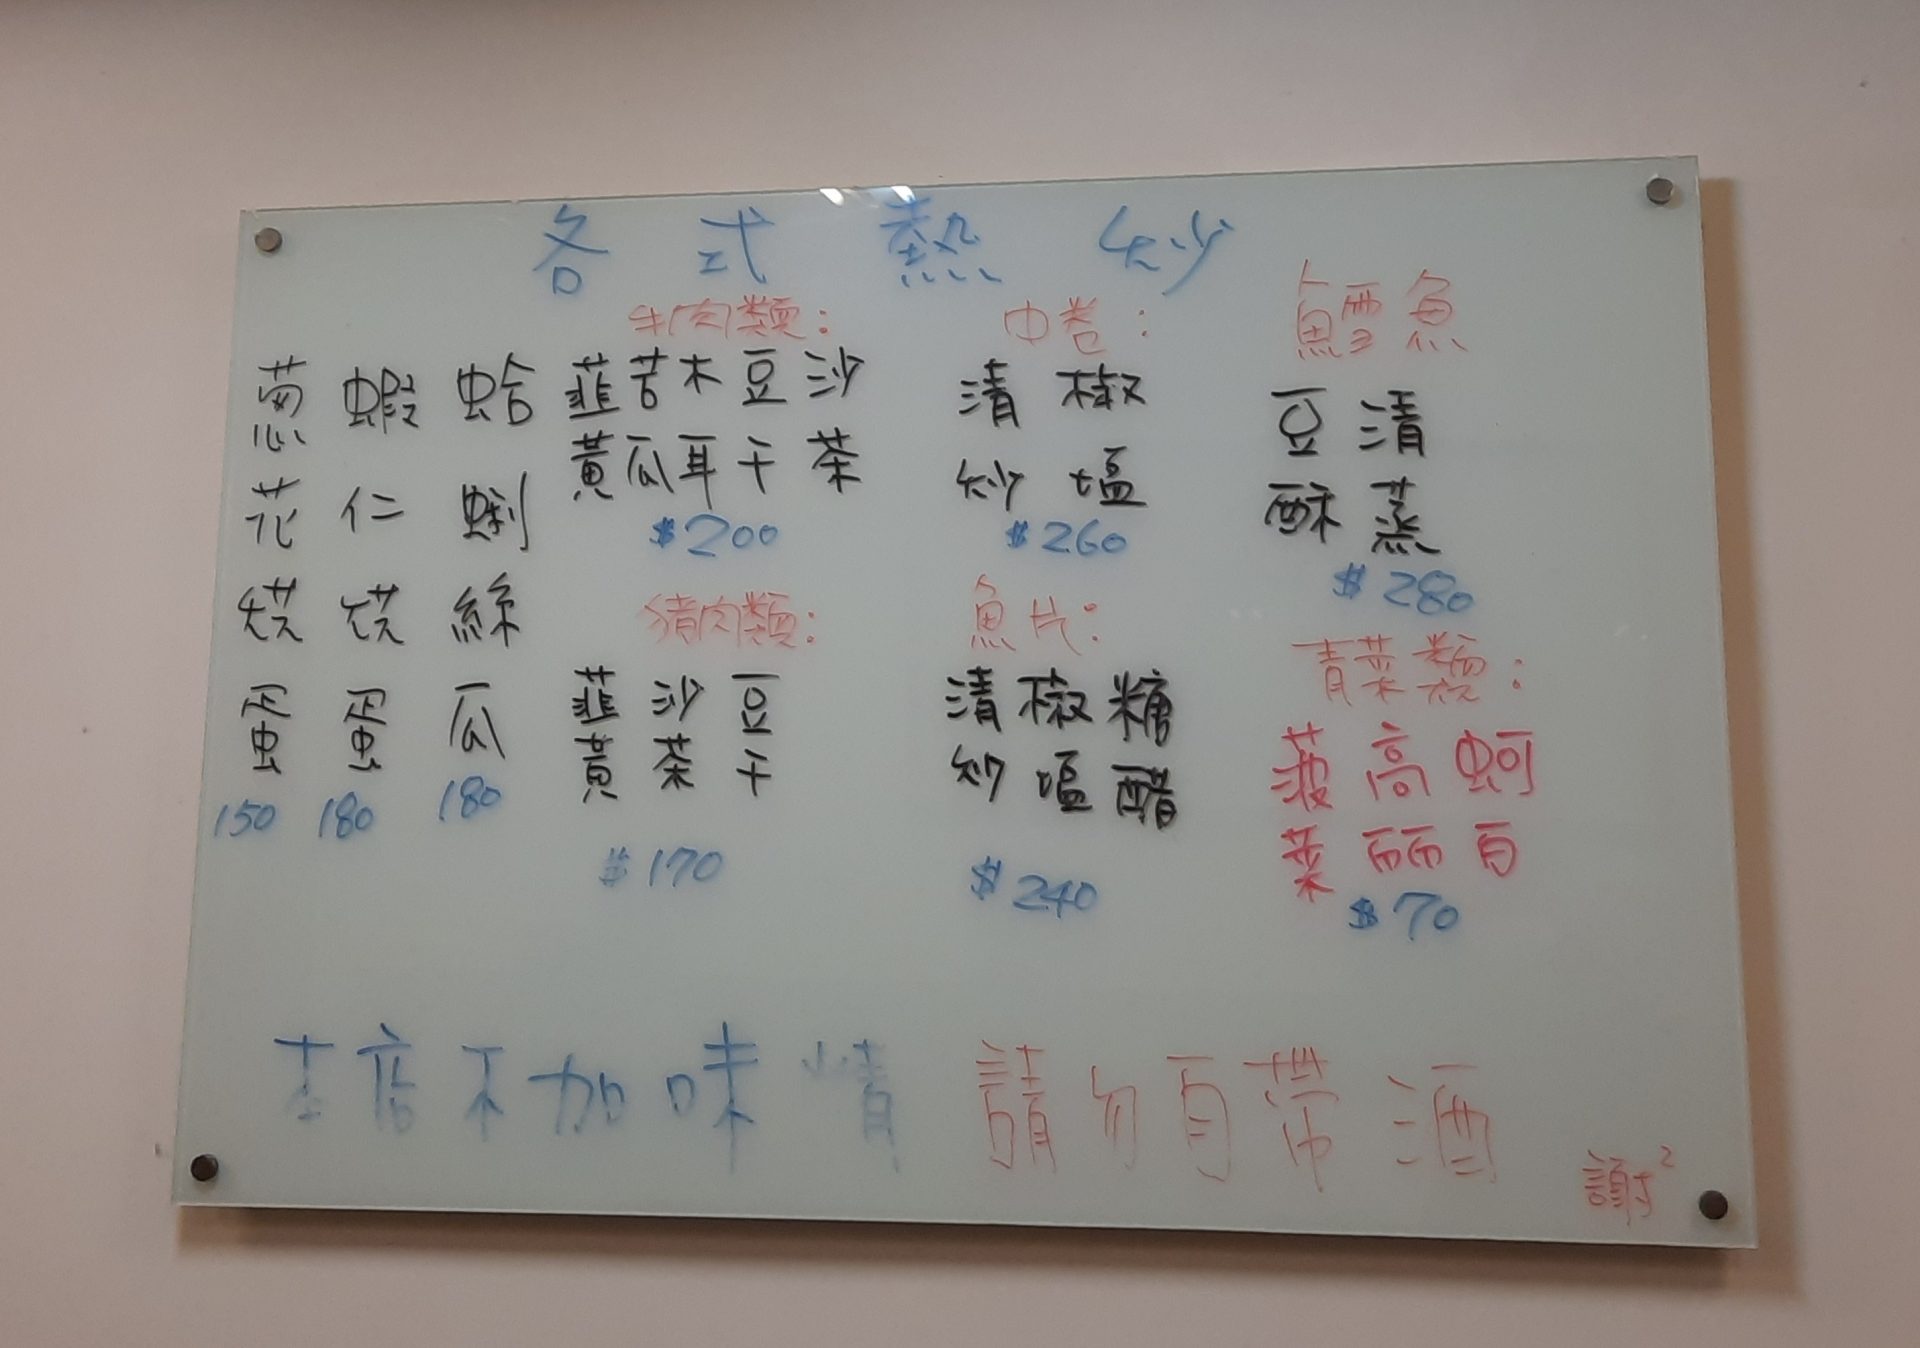 各式熱炒
葱花烘蛋
150
蝦仁烘蛋
180
蛤蜊絲瓜
180
牛肉類:
韮黃
苦瓜
木耳
豆干
沙茶
$200
猪肉類:
韮黃
沙茶
豆干
$170
中卷:
清炒
椒塩
$260
魚片:
清炒
椒塩
糖醋
$240
鱈魚
豆酥
清蒸
$280
青菜類:
菠菜
高丽
蚵白
$70
本店不加味精
請勿自帶酒
謝²